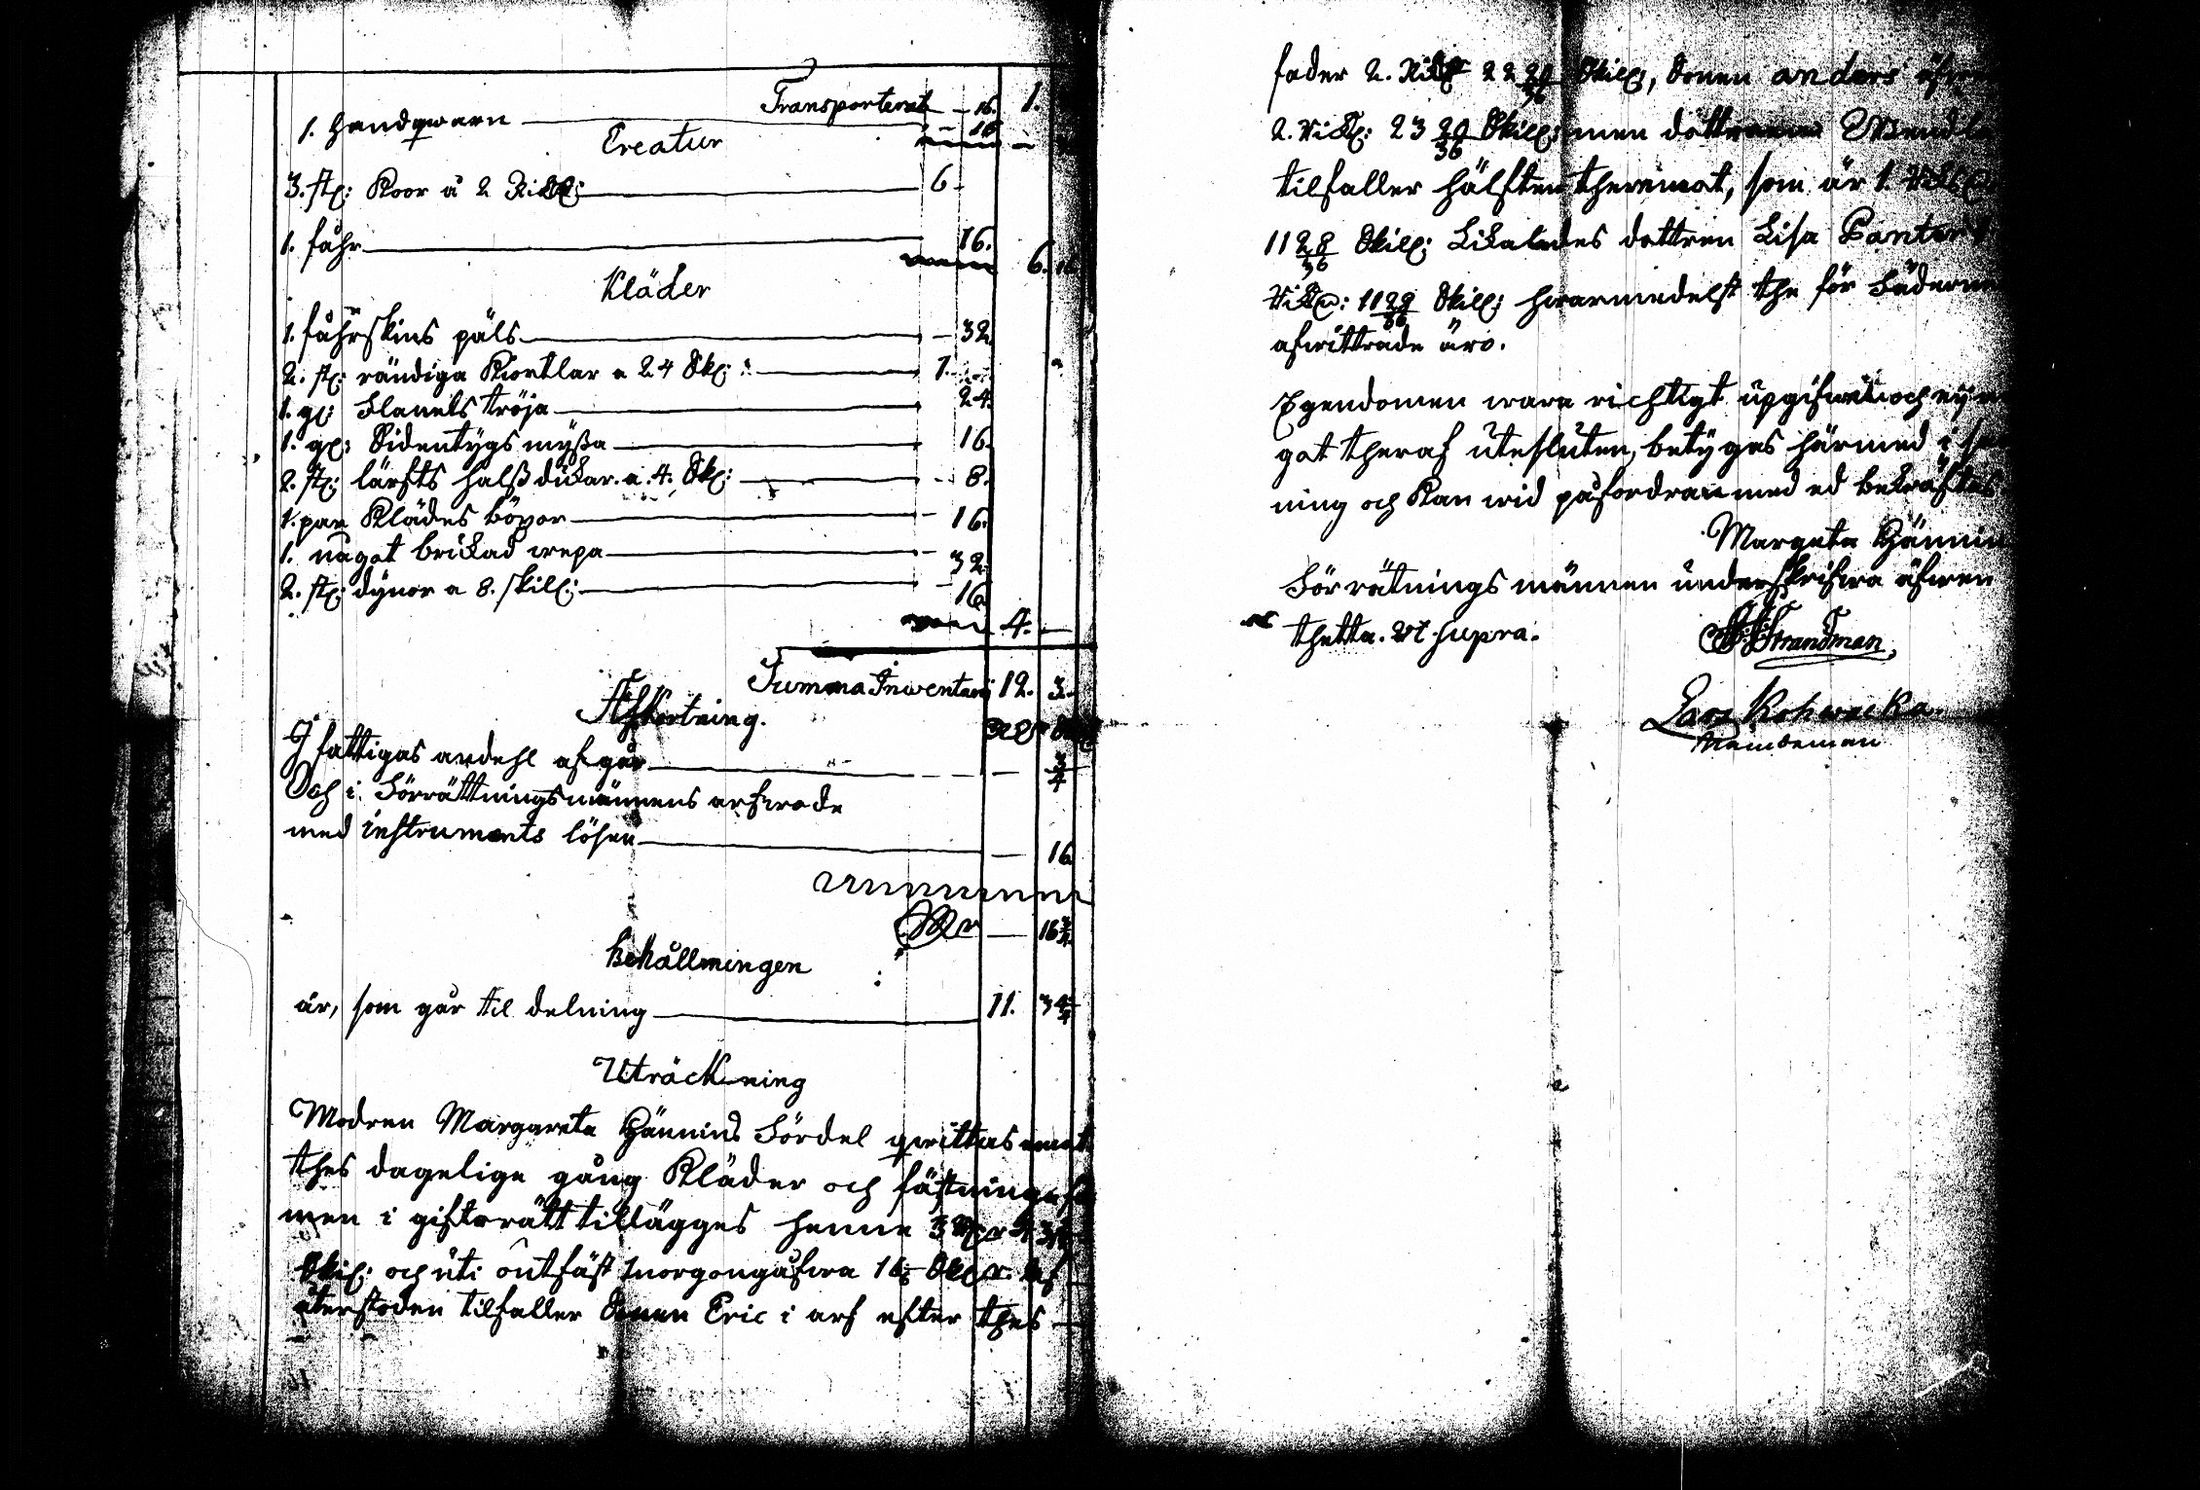 Transporterat — 16. 1.
1. handqwarn — 16
Creatur
3. st: Koor á 2 Rikd: 6.
1. fåhr 16.
6. 16
Kläder
1. fåhrskins päls — 32
2. st: rändiga Kiortlar a 24 Sk: 1.
1. gl: Flanels tröja 24.
1. gl: Sidentÿgs mÿssa 16.
2. st: lärfts halsdukar a. 4. Sk: — 8.
1. par Klädes böxor — 16.
1. något brukad wepa — 32
2. st: dÿnor a 8. skill: — 16
4. —
Summa Inventarij 12. 3.
Afkortning.
I fattigas andehl afgår — 3/4
Och i Förrättningsmännens arfwode
med instruments lösen — 16
— 16 3/4
Behållningen
är, som går til delning 11. 34 1/4
Uträckning
Modren Margareta Hännins Fördel qwittas emot
thes dagelige gång Kläder och fästningg
men i giftorätt tillägges henne 3
Skil: och uti outfäst morgongåfwa 16 Af
återstoden tilfaller Sonen Eric i arf efter thes
fader 2. Rikd 22 20/36 Skill:, Sonen anders äfwen
2. Rikd: 23 20/36 Skill: men dottren
tilfaller hälften theremot, som är 1. Rikd
11 28/36 Skill: Likaledes dottren Lisa
Rikd: 11 29/36 Skill: hwarmedelst the för Fäderne
afwittrade äro.
Egendomen wara richtigt upgifwen och eÿ
got theraf utesluten, betÿgas härmed i
ning och Kan wid påfordran med ed bekräftas
Margreta Hännin
Förrätnings männen underskrifwa äfwen
thetta. Ut supra.
Strandman,
Lars Kohwacka.
Nämdeman